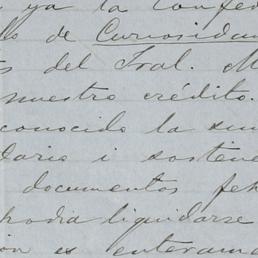 ya la Confed
de Curiosidad
del Gral. M
nuestro crédito.
conocido la sum
dario i sostene
documentos feh
podia liquidarse
ion es enteram